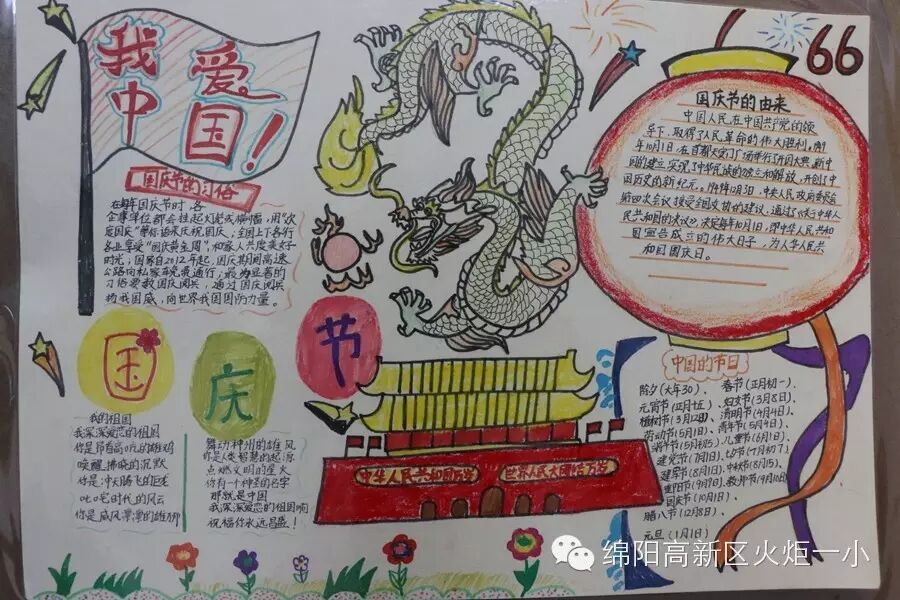 我爱
中国！
66
国庆节的习俗
在每年国庆节时，各
企事业单位都会挂起灯笼或横幅，用“欢
度国庆”等标语来庆祝国庆；全国上下各行
各业享受“国庆黄金周”，和家人共度美好
时光；国家自2012年起，国庆期间高速
公路向私家车免费通行；最为显著的
习俗要数国庆阅兵，通过国庆阅兵
扬我国威，向世界我国国防力量。
国庆节的由来
中国人民，在中国共产党的领
导下，取得了人民革命的伟大胜利，1949
年10月1日，在首都天安门广场举行了开国大典，新中
国的建立，实现了中华民族的独立和解放，开创了中
国历史的新纪元。1949年12月3日，中央人民政府委员会
第四次会议接受全国政协的建议，通过了《关于中华人
民共和国的决议》，决定每年10月1日，即中华人民共和
国宣告成立的伟大日子，为人华人民共
和国国庆日。
国
庆
节
我的祖国
我深深爱恋的祖国
你是昂首高吭的雄鸡
唤醒拂晓的沉默
你是冲天腾飞的巨龙
叱咤时代的风云
你是威风凛凛的雄狮
舞动神州的雄风
你是人类智慧的起源
点燃文明的星火
你有一个神圣的名字
那就是中国
我深深爱恋的祖国啊
祝福你永远昌盛！
中华人民共和国万岁
世界人民大团结万岁
中国的节日
除夕(大年30)、春节(正月初一)、
元宵节(正月十五)、妇女节(3月8日)、
植树节(3月12日)、清明节(4月4日)、
劳动节(5月1日)、青年节(5月4日)、
端午节(5月初5)、儿童节(6月1日)、
建党节(7月1日)、七夕节(7月初7)、
建军节(8月1日)、中秋节(8月15)、
重阳节(9月9日)、教师节(9月10日)、
国庆节(10月1日)、
腊八节(12月8日)、
元旦(1月1日)
绵阳高新区火炬一小